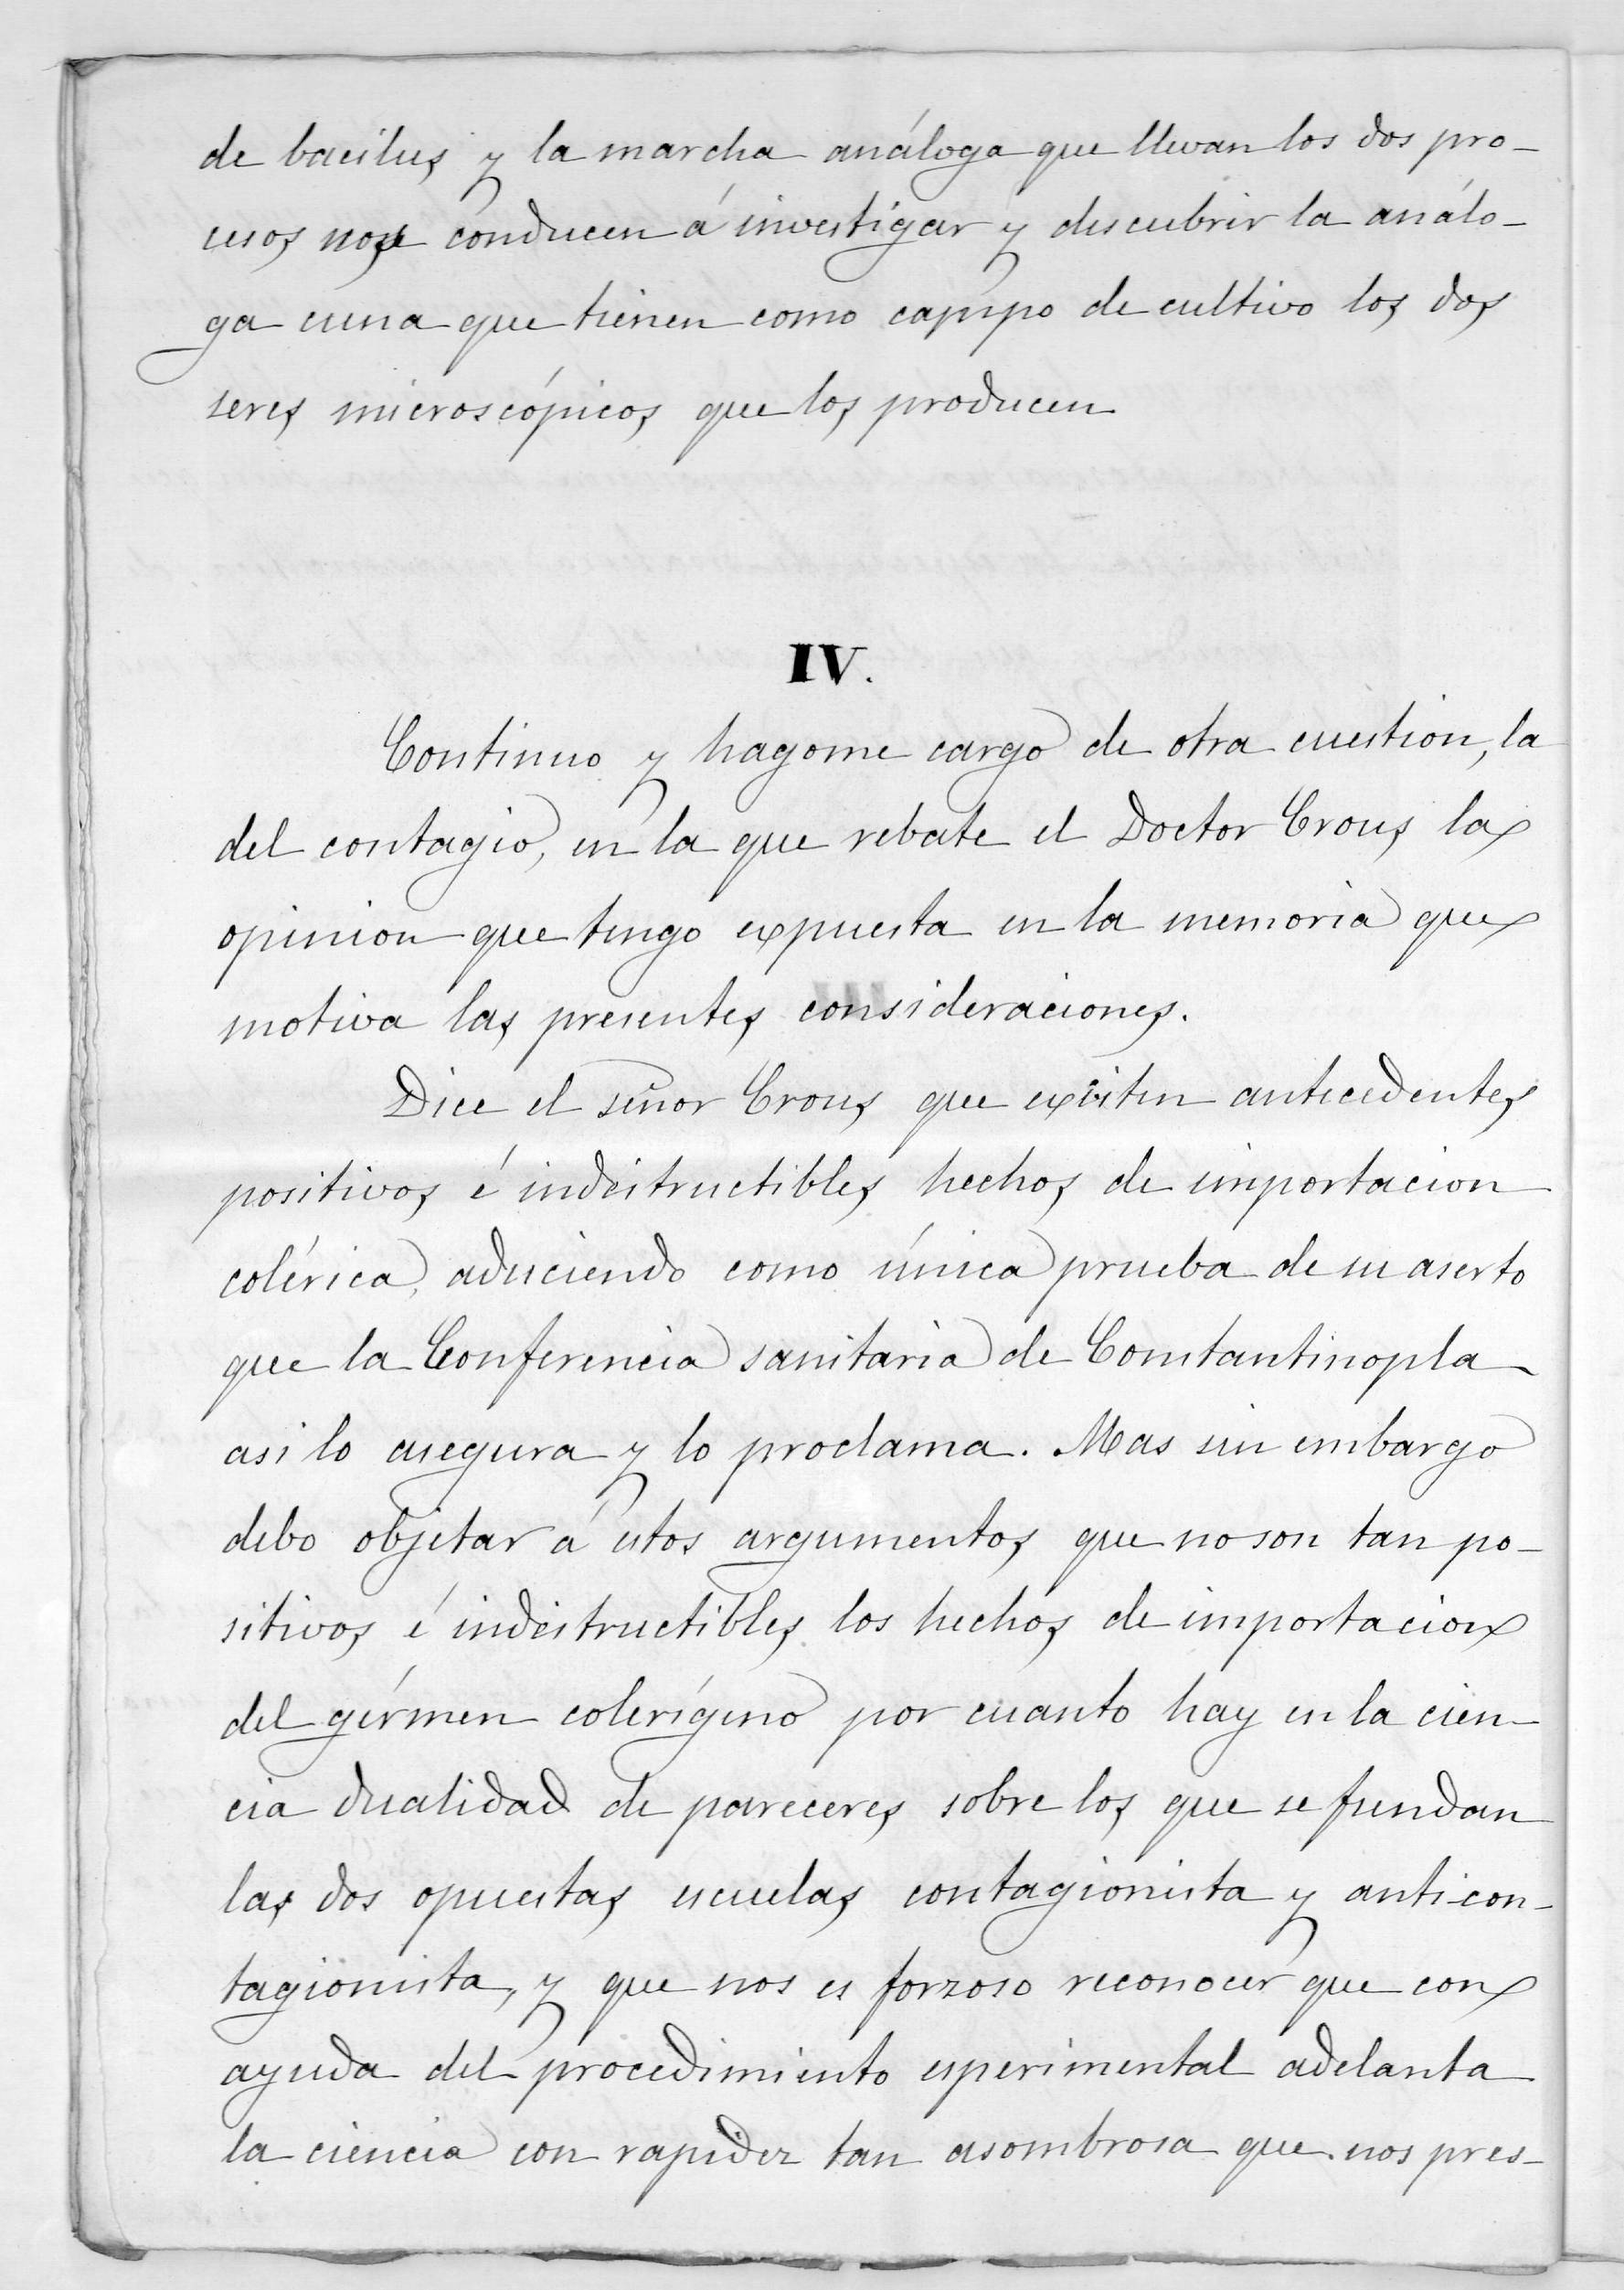 de bacilus y la marcha análoga que llevan los dos pro-
cesos nos conducen á investigar y descubrir la análo-
ga cuna que tienen como campo de cultivo los dos
seres microscópicos que los producen
IV.
Continuo y hagome cargo de otra cuestion, la
del contagio, en la que rebate el Doctor Crous la
opinion que tengo expuesta en la memoria que
motiva las presentes consideraciones.
Dice el señor Crous que existen antecedentes
positivos é indestructibles hechos de importacion
colérica, aduciendo como única prueba de su aserto
que la Conferencia sanitaria de Constantinopla
asi lo asegura y lo proclama. Mas sin embargo
debo objetar á estos argumentos, que no son tan po-
sitivos é indestructibles los hechos de importacion
del gérmen colerígeno por cuanto hay en la cien-
cia dualidad de pareceres sobre los que se fundan
las dos opuestas escuelas contagionista y anti-con-
tagionista, y que nos es forzoso reconocer que con
ayuda del procedimiento esperimental adelanta
la ciencia con rapidez tan asombrosa que nos pres-